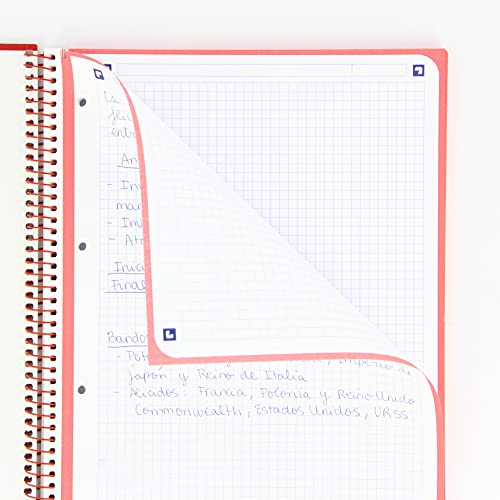 La
entre
An
- Inv
mar
- Inv
- Ato
Inicio
Final
Bando
- Pot Imperio de
Japón y Reino de Italia
- Aliados: Francia, Polonia y Reino Unido
Commonwealth, Estados Unidos, URSS